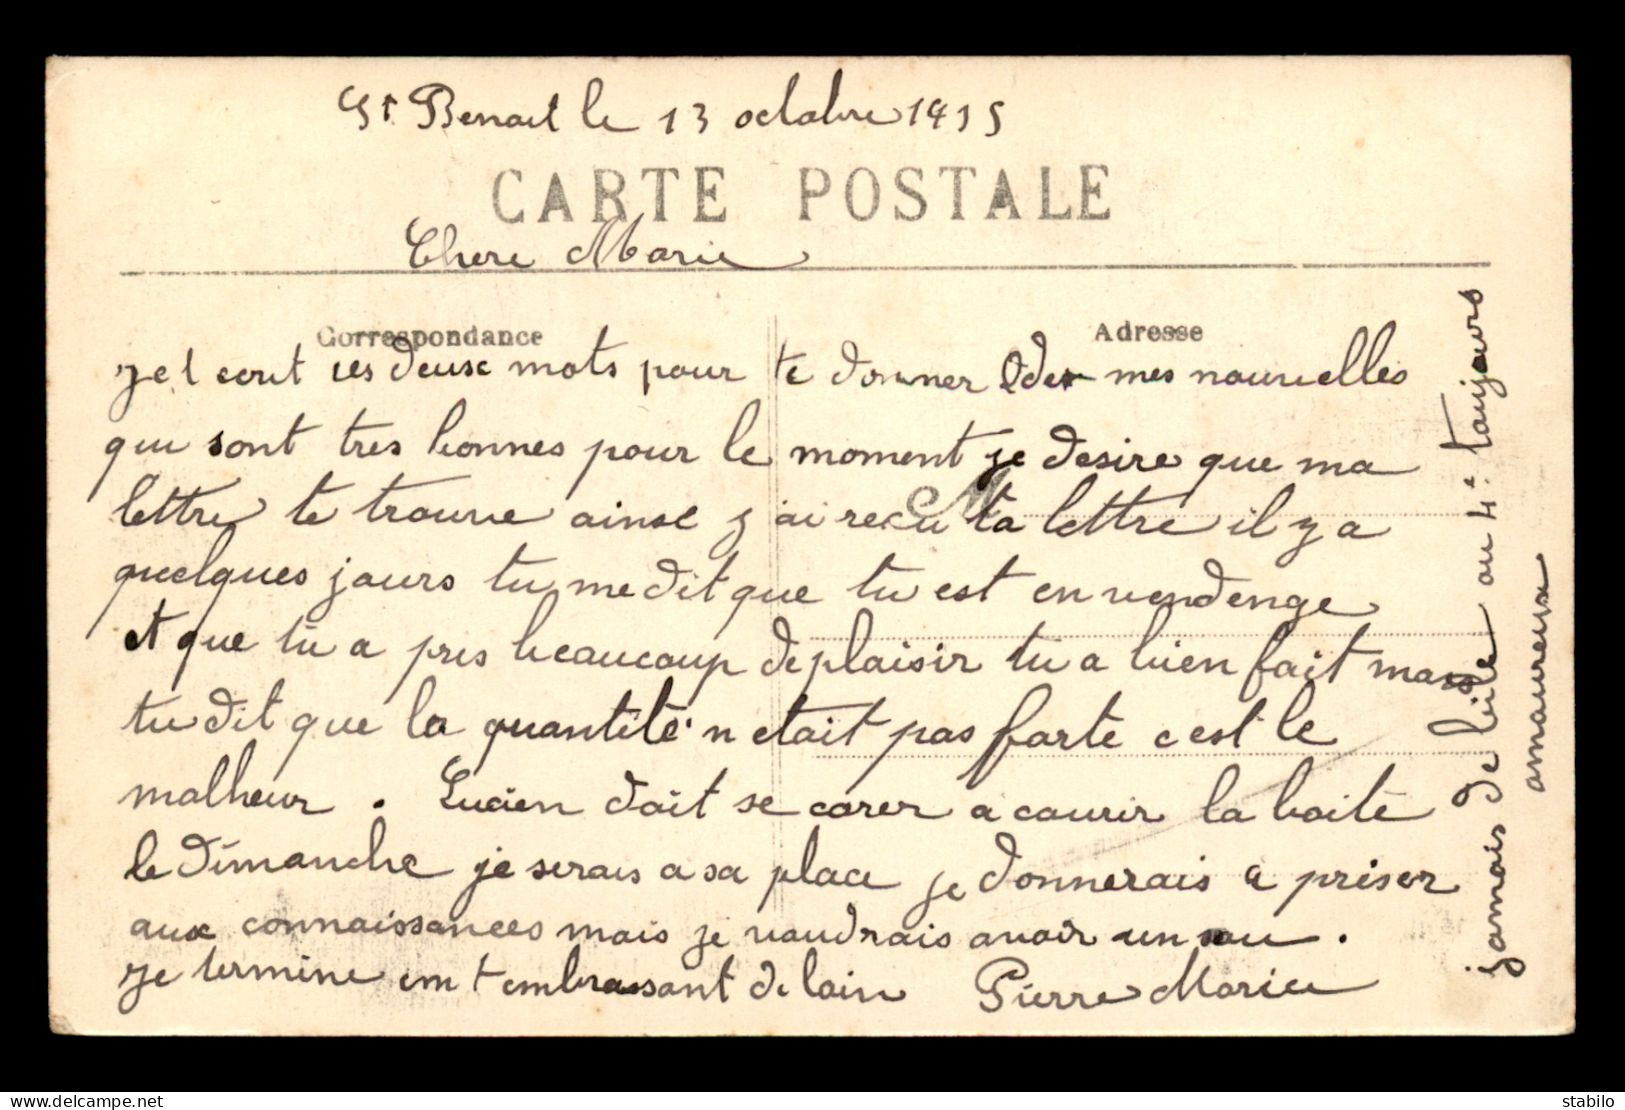 St Benoit le 13 octobre 1915
CARTE POSTALE
Chere Marie
Correspondance
Adresse
Je t ecrit ces deux mots pour te donner de mes nouvelles
qui sont tres bonnes pour le moment je desire que ma
lettre te trouve ainsi j ai recu ta lettre il y a
quelques jours tu me dit que tu est en vendenge
et que tu a pris beaucoup de plaisir tu a bien fait mais
tu dit que la quantite n etait pas forte c est le
malheur . Lucien doit se carer a courir la boite
le dimanche je serais a sa place je donnerais a priser
aux connaissances mais je voudrais avoir un sou .
Je termine en t embrassant de loin Pierre Marie
jamais de bile au 4e toujours
amoureux
stabilo